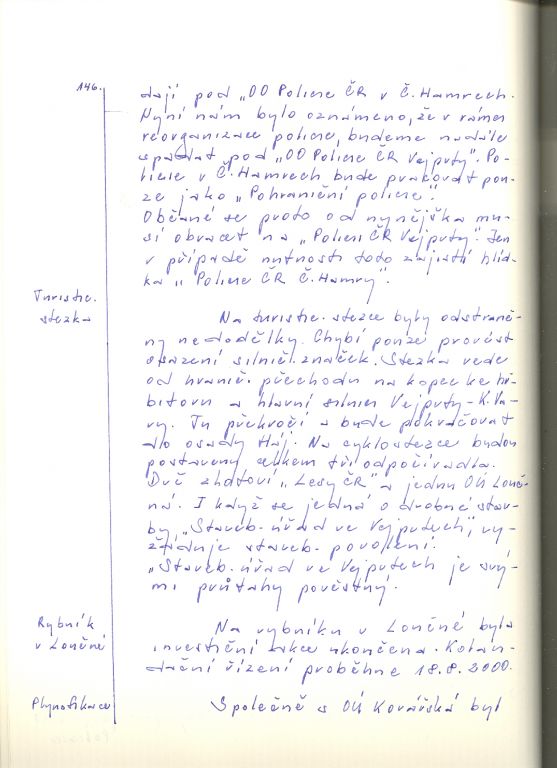 146.
dají pod „OO Policie ČR v Č. Hamrech.
Nyní nám bylo oznámeno, že v rámci
reorganizace policie, budeme nadále
spadat pod „OO Policie ČR Vejprty". Po-
licie v Č. Hamrech bude pracovat pou-
ze jako „Pohraniční policie".
Občané se proto od nynějška mu-
sí obracet na „Policii ČR Vejprty". Jen
v případě nutnosti toto zajistí hlíd-
ka „Policie ČR Č. Hamry".
Turistic.
stezka
Na turistic. stezce byly odstraně-
ny nedodělky. Chybí pouze provést
osazení silnič. značek. Stezka vede
od hranič. přechodu na kopec ke hř-
bitovu a hlavní silnici Vejprty - K. Va-
ry. Tu překročí a bude pokračovat
do osady Háj. Na cyklostezce budou
postaveny celkem tři odpočívadla.
Dvě zhotoví „Lesy ČR" a jednu OÚ Louč-
ná. I když se jedná o drobné stav-
by, „Staveb. úřad ve Vejprtech", vy-
žaduje staveb. povolení.
„Staveb. úřad ve Vejprtech je svý-
mi průtahy pověstný.
Rybník
v Loučné
Na rybníku v Loučné byla
investiční akce ukončena. Kolau-
dační řízení proběhne 18.8.2000.
Plynofikace
Společně s OÚ Kovářská byl